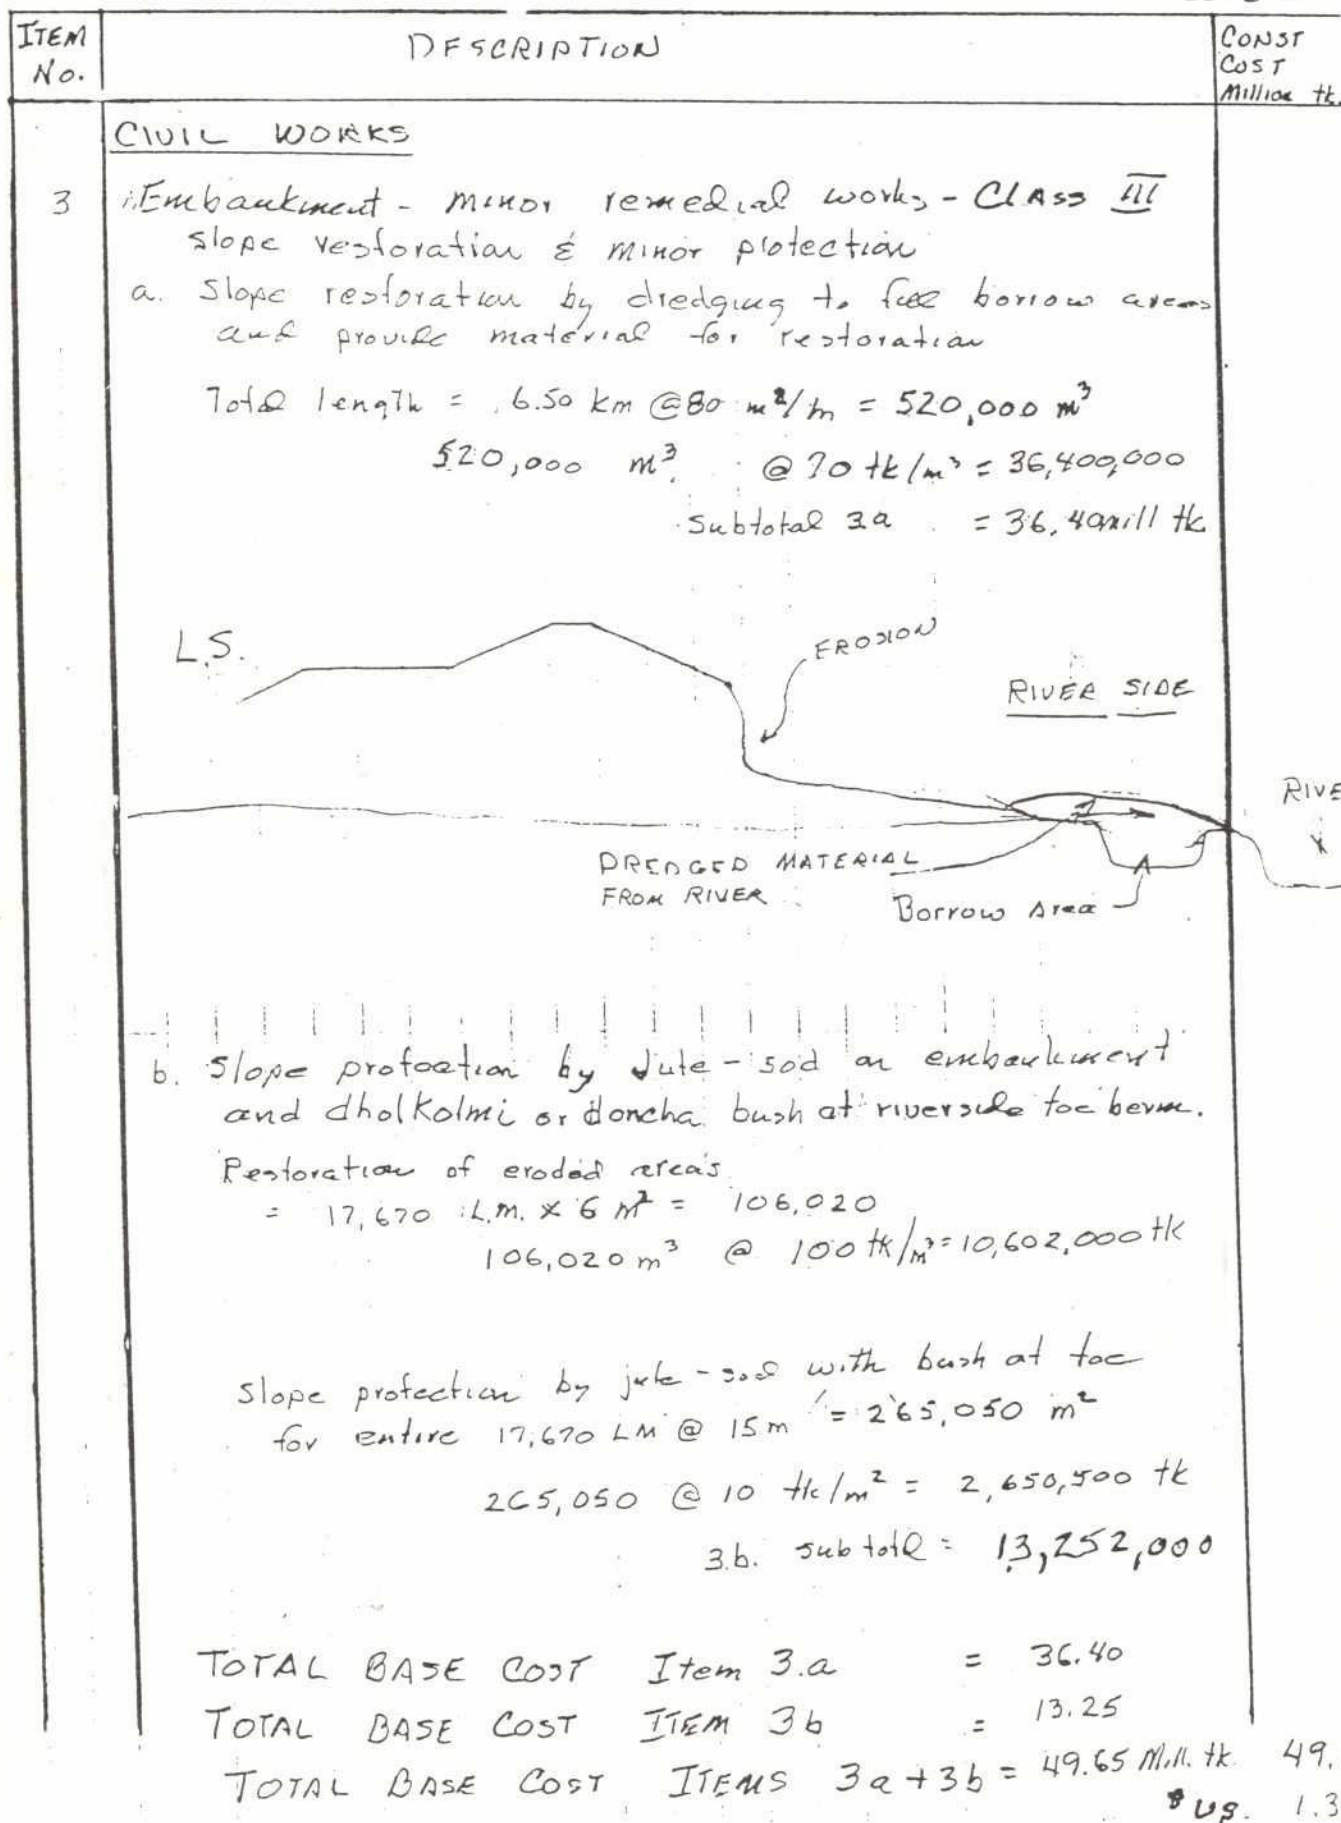 ITEM No.
DESCRIPTION
CONST COST Million tk.
CIVIL WORKS
3 Embankment - minor remedial works - CLASS III
slope restoration & minor protection
a. Slope restoration by dredging to fill borrow areas
and provide material for restoration
Total length = 6.50 km @ 80 m²/m = 520,000 m³
520,000 m³ @ 70 tk/m³ = 36,400,000
Subtotal 3a = 36.40 mill tk
L.S.
EROSION
RIVER SIDE
RIVE
DREDGED MATERIAL
FROM RIVER
Borrow Area
b. Slope protection by Jute - sod on embankment
and dholkolmi or doncha bush at riverside toe berm.
Restoration of eroded area's
= 17,670 L.M. × 6 m² = 106,020
106,020 m³ @ 100 tk/m³ = 10,602,000 tk
Slope protection by jute - sod with bush at toe
for entire 17,670 LM @ 15m = 265,050 m²
265,050 @ 10 tk/m² = 2,650,500 tk
3.b. subtotal = 13,252,000
TOTAL BASE COST Item 3.a = 36.40
TOTAL BASE COST ITEM 3b = 13.25
TOTAL BASE COST ITEMS 3a + 3b = 49.65 Mill. tk. 49.
$ US. 1.3